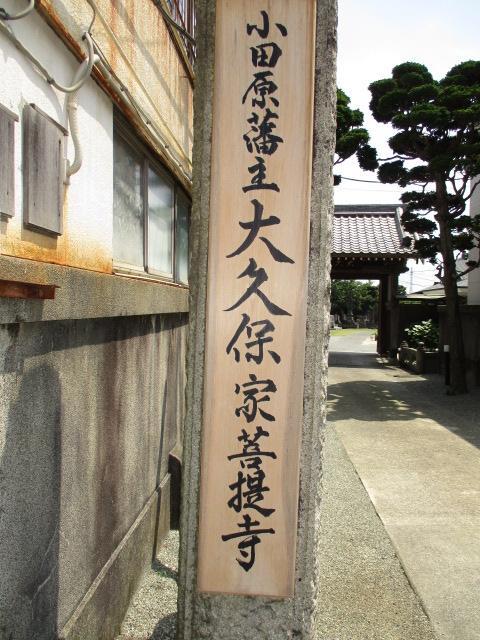 小田原藩主大久保家菩提寺